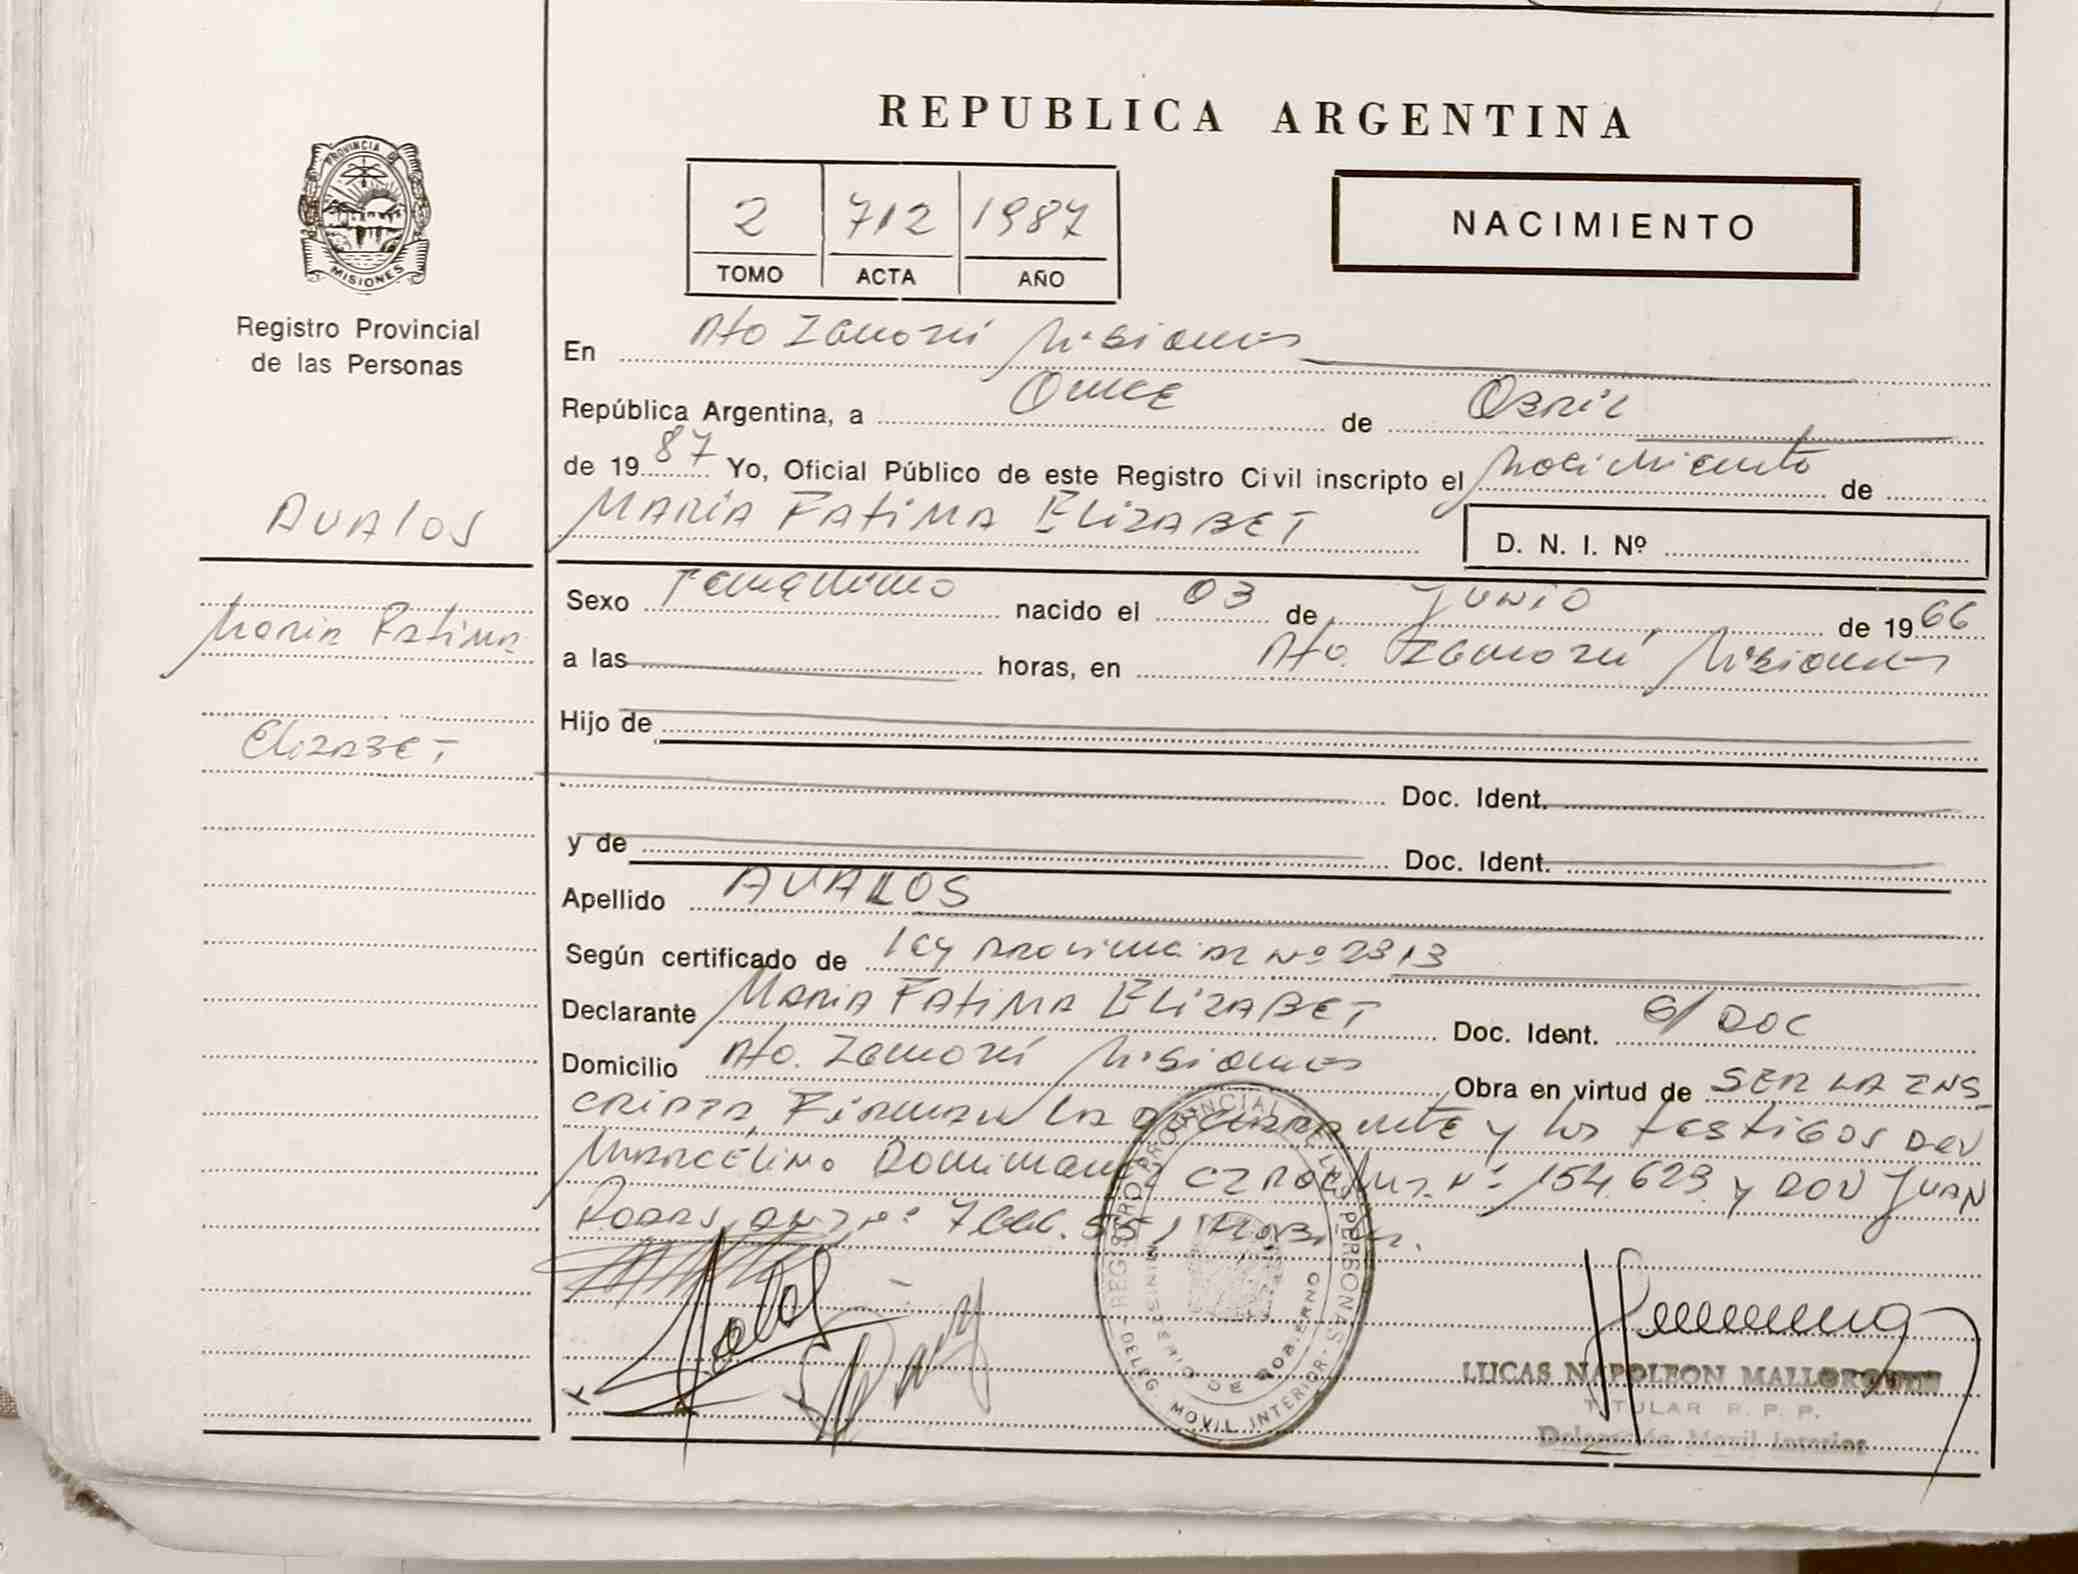 REPUBLICA ARGENTINA
PROVINCIA DE
MISIONES
Registro Provincial
de las Personas
2 712 1987
TOMO ACTA AÑO
NACIMIENTO
En Pto Zamorí Misiones
República Argentina, a Once de Abril
de 19 87 Yo, Oficial Público de este Registro Civil inscripto el Nacimiento de
MARIA FATIMA ELIZABET D. N. I. Nº
AVALOS
Maria Fatima
Elizabet
Sexo Femenino nacido el 03 de JUNIO de 19 66
a las horas, en Pto. Zamorí Misiones
Hijo de
Doc. Ident.
y de Doc. Ident.
Apellido AVALOS
Según certificado de ley provincial Nº 2313
Declarante MARIA FATIMA ELIZABET Doc. Ident. S/ DOC
Domicilio Pto. Zamorí Misiones Obra en virtud de SER LA INS
CRIPTA, Firman la declarante y los testigos DON
MARCELINO Dominguez Nº 154.623 y DON JUAN
REGISTRO PROVINCIAL DE LAS PERSONAS
MINISTERIO DE GOBIERNO
DELEG. MOVIL INTERIOR
LUCAS NAPOLEON
TITULAR R. P. P.
Delegación Movil Interior